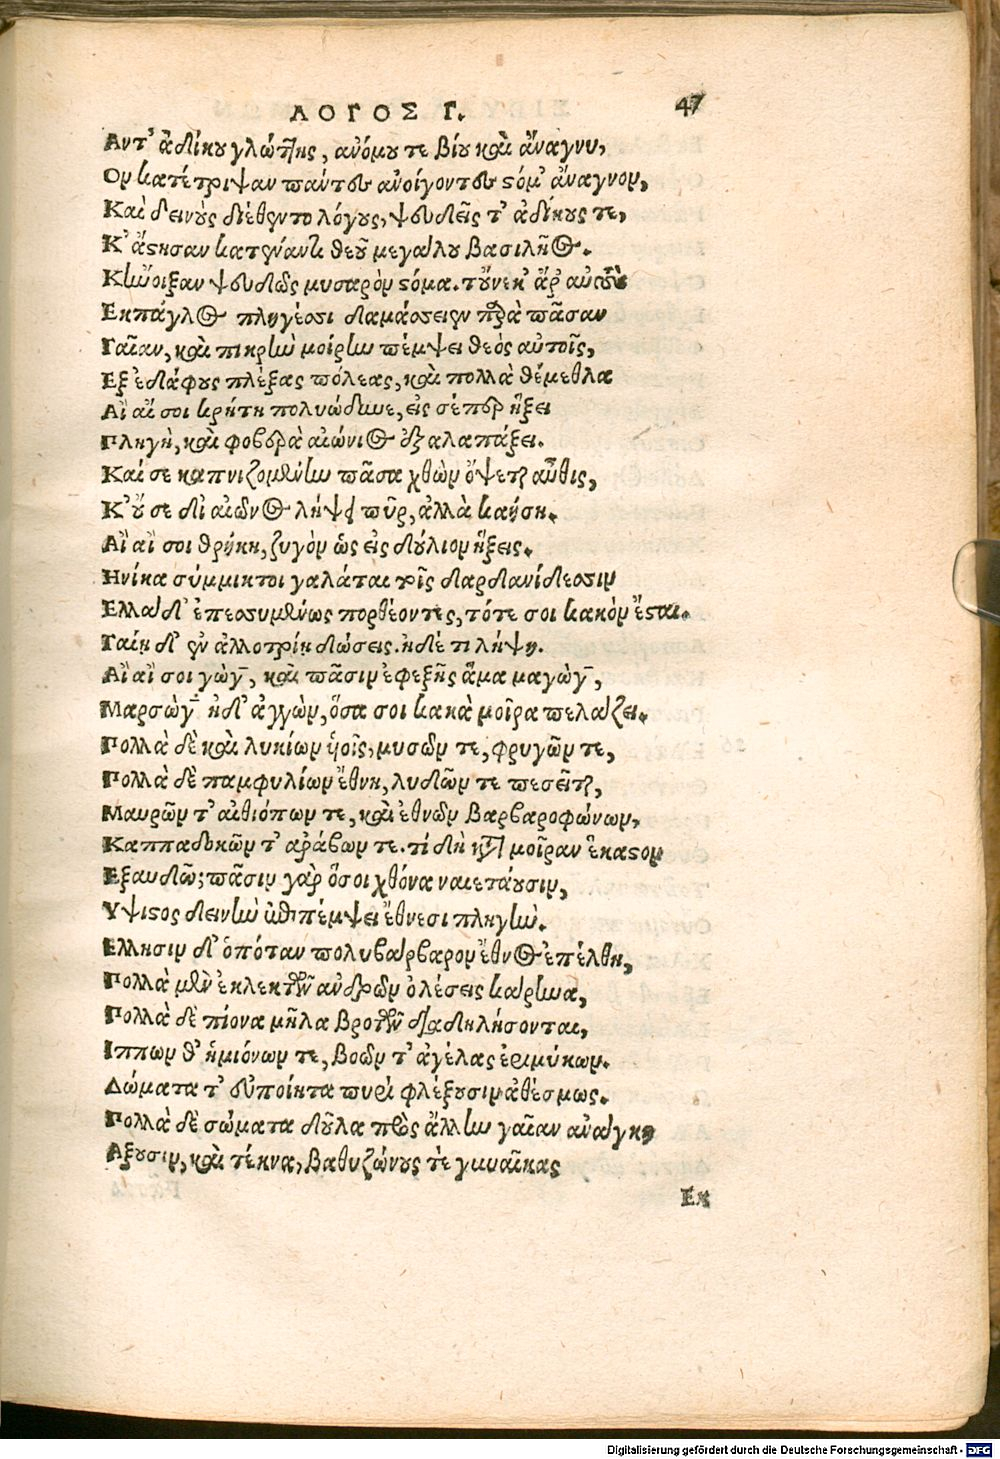 ΛΟΓΟΣ Γ. 47
Αντ' ἀδίκου γλώττης, ἀνόμου τε βίου καὶ ἄναγνυ,
Ον κατέτριψαν παντεσ ἀνοίγοντεσ στόμ' ἄναγνον,
Καὶ δεινοὺς διέθεντο λόγους, ψευδεῖς τ' ἀδίκους τε,
Κ' ἄστησαν κατέναντι θεοῦ μεγάλου βασιλῆος.
Κἤνοιξαν ψευδῶς μυσαρὸν στόμα. τοὔνεκ' ἄρ' αὐτοὺς
Εκπάγλος πληγέοσι δαμάσσειεν παρὰ πᾶσαν
Γαῖαν, καὶ πικρὴν μοίρην πέμψει θεὸς αὐτοῖς,
Εξ ἐδάφους πλέξας πόλεας, καὶ πολλὰ θέμεθλα
Αἲ αἴ σοι κρήτη πολυώδυνε, εἰς σέπερ ἥξει
Πληγὴ, καὶ φοβερὰ αἰώνιος ἐξαλαπάξει.
Καί σε καπνιζομένην πᾶσα χθὼν ὄψεται αὖθις,
Κ' οὔ σε δι' αἰῶνος λήψει πῦρ, ἀλλὰ καήση.
Αἲ αἴ σοι θρῄκη, ζυγὸν ὡς εἰς δούλιον ἥξεις.
Ηνίκα σύμμικτοι γαλάται τοῖς δαρδανίδεσσιν
Ελλάδ' ἐπεσσυμένως πορθέοντες, τότε σοι κακὸν ἔσται.
Γαίη δ' ἐν ἀλλοτρίῃ δώσεις. ἠδέ τι λήψῃ.
Αἲ αἴ σοι γὼγ, καὶ πᾶσιν ἐφεξῆς ἅμα μαγὼγ,
Μαρσὼγ ἠδ' ἀγγὼν, ὅσα σοι κακὰ μοῖρα πελάζει.
Πολλὰ δὲ καὶ λυκίων υἱοῖς, μυσῶν τε, φρυγῶν τε,
Πολλὰ δὲ παμφυλίων ἔθνη, λυδῶν τε πεσεῖται,
Μαυρῶν τ' αἰθιόπων τε, καὶ ἐθνῶν βαρβαροφώνων,
Καππαδοκῶν τ' ἀράβων τε. τί δὴ κατὰ μοῖραν ἕκαστον
Εξαυδῶ; πᾶσιν γὰρ ὅσοι χθόνα ναιετάουσιν,
Υψιστος δεινὴν ἐπιπέμψει ἔθνεσι πληγήν.
Ελλησιν δ' ὁπόταν πολυβάρβαρον ἔθνος ἐπέλθη,
Πολλὰ μὲν ἐκλεκτῶν ἀνδρῶν ὀλέσεις κάρηνα,
Πολλὰ δὲ πίονα μῆλα βροτῶν διαδηλήσονται,
Ιππων θ' ἡμιόνων τε, βοῶν τ' ἀγέλας ἐριμύκων.
Δώματα τ' εὐποίητα πυρὶ φλέξουσιν ἀθέσμως.
Πολλὰ δὲ σώματα δοῦλα πρὸς ἄλλην γαῖαν ἀνάγκῃ
Αξουσιν, καὶ τέκνα, βαθυζώνους τὲ γυναῖκας
Εκ
Digitalisierung gefördert durch die Deutsche Forschungsgemeinschaft - DFG